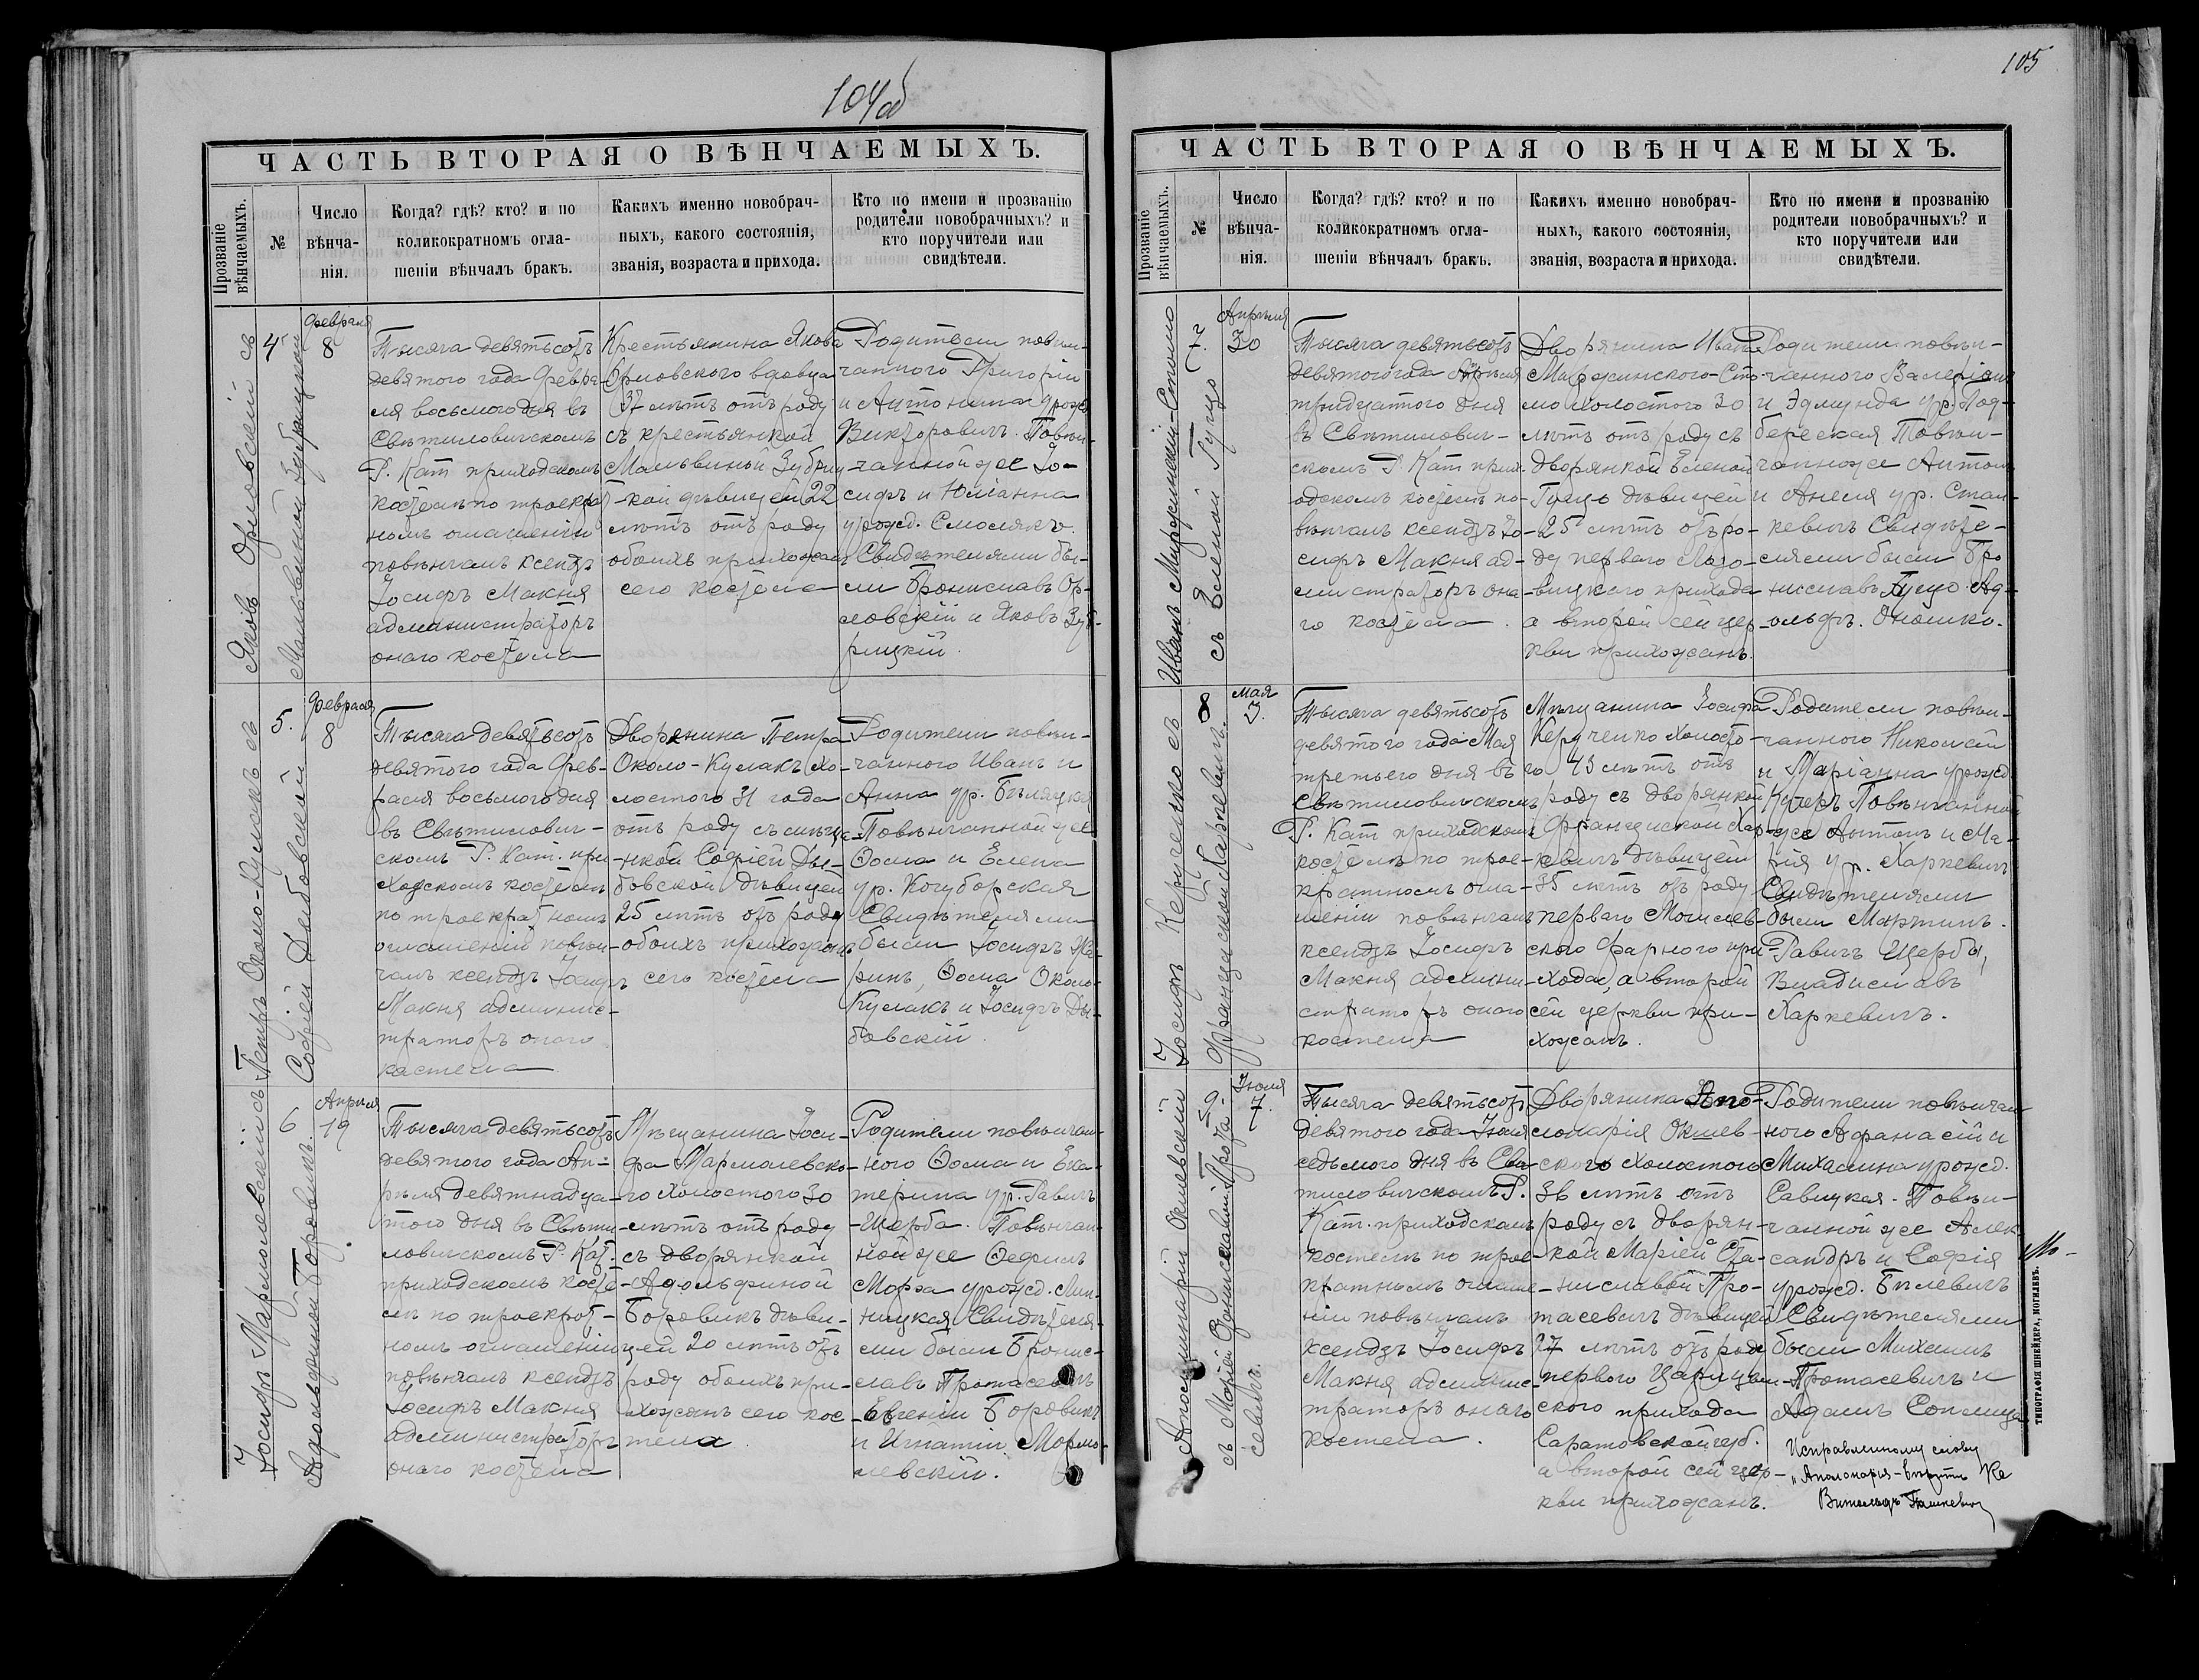 104об
ЧАСТЬ ВТОРАЯ О ВѢНЧАЕМЫХЪ.
Прозваніе
вѣнчаемыхъ.
№
Число
вѣнча-
нія.
Когда? гдѣ? кто? и по
коликократномъ огла-
шеніи вѣнчалъ бракъ.
Какихъ именно новобрач-
ныхъ, какого состоянія,
званія, возраста и прихода.
Кто по имени и прозванію
родители новобрачныхъ? и
кто поручители или
свидѣтели.
Яковъ Орловскій съ
Мальвиной Зубрицкой
4
Февраля
8
Тысяча девятьсотъ
девятого года Февра-
ля восьмого дня въ
Свѣтиловичскомъ
Р. Кат приходскомъ
костелѣ по троекрат-
номъ оглашеніи
повѣнчалъ ксендзъ
Іосифъ Макня
администраторъ
онаго костела
Крестьянина Якова
Орловского вдовца
37 лѣтъ отъ роду
съ крестьянкой
Мальвиной Зубриц-
-кой дѣвицей 22
лѣтъ отъ роду
обоихъ прихожан
сего костела
Родители повѣн-
чанного Григорій
и Антонина урожд
Викторовичъ. Повѣн-
чанной же Іо-
сифъ и Юліанна
урожд. Смолякъ.
Свидѣтелями бы-
ли Брониславъ Ор-
ловскій и Яковъ Зуб-
рицкій.
Петръ Около-Кулакъ съ
Софіей Дыбовской
5.
Февраля
8
Тысяча девятьсотъ
девятого года Фев-
раля восьмого дня
въ Свѣтилович-
скомъ Р. Кат. при-
ходскомъ костелѣ
по троекратномъ
оглашеніи повѣн-
чалъ ксендзъ Іосифъ
Макня админис-
траторъ оного
костела
Дворянина Петра
Около-Кулакъ хо-
лостого 31 года
отъ роду съ
-нкой Софіей Ды-
бовской дѣвицей
25 лѣтъ отъ роду
обоихъ прихожанъ
сего костела
Родители повѣн-
чанного Иванъ и
Анна ур. Бѣляцкая
Повѣнчанной же
Ѳома и Елена
ур. Кочуборская
Свидѣтелями
были Іосифъ
ринъ, Ѳома Около-
Кулакъ и Іосифъ Ды-
бовскій.
Іосифъ Мармолевскій съ
Адольфиной Боровикъ.
6
Апрѣля
19
Тысяча девятьсотъ
девятого года Ап-
рѣля девятнадца-
того дня въ Свѣти-
ловичскомъ Р. Кат.
приходскомъ косте-
лѣ по троекрат-
номъ оглашеніи
повѣнчалъ ксендзъ
Іосифъ Макня
администраторъ
онаго костела
Мѣщанина Іоси-
фа Мармолевско-
го холостого 30
лѣтъ отъ роду
съ дворянкой
Адольфиной
Боровикъ дѣви-
цей 20 лѣтъ отъ
роду обоихъ при-
хожанъ сего кос-
тела.
Родители повѣнчан-
ного Ѳома и Ека-
терина ур. Равичъ
-Щерба. Повѣнчан-
ной же
урожд. Лип-
ницкая Свидѣтеля-
ми были Бронис-
лавъ Протасевичъ
Евгеній Боровикъ
и Игнатій Мармо-
левскій.
105
ЧАСТЬ ВТОРАЯ О ВѢНЧАЕМЫХЪ.
Прозваніе
вѣнчаемыхъ.
№
Число
вѣнча-
нія.
Когда? гдѣ? кто? и по
коликократномъ огла-
шеніи вѣнчалъ бракъ.
Какихъ именно новобрач-
ныхъ, какого состоянія,
званія, возраста и прихода.
Кто по имени и прозванію
родители новобрачныхъ? и
кто поручители или
свидѣтели.
Иванъ Мирожинскій-Стомо
съ Еленой Гуцо
7.
Апрѣля
30
Тысяча девятьсотъ
девятого года Апрѣля
тридцатого дня
въ Свѣтилович-
скомъ Р. Кат прих-
одскомъ костелѣ по-
вѣнчалъ ксендзъ Іо-
сифъ Макня ад-
министраторъ она-
го костела.
Дворянина Ивана
Мирожинского-Сто-
мо холостого 30
лѣтъ отъ роду съ
дворянкой Еленой
Гуцо дѣвицей
25 лѣтъ отъ ро-
ду перваго
прихода
а второй сей цер-
кви прихожанъ.
Родители повѣн-
чанного Валеріанъ
и Эдмунда ур. Под-
береская Повѣн-
чанной же Антонъ
и Анеля ур. Стан-
кевичъ Свидѣте-
лями были Бро
ниславъ Гуцо Ад-
ольфъ. Оношко.
Іосифъ Керученко съ
Француской Харкевичъ
8
Мая
3.
Тысяча девятьсотъ
девятого года Мая
третьего дня въ
Свѣтиловичскомъ
Р. Кат приходскомъ
костелѣ по трое-
кратномъ огла-
шеніи повѣнчалъ
ксендзъ Іосифъ
Макня админи-
страторъ оного
костела
Мѣщанина Іосифа
Керученко холосто-
го 43 лѣтъ отъ
роду съ дворянкой
Француской Хар-
кевичъ дѣвицей
35 лѣтъ отъ роду
перваго Могилев-
ского фарного при-
хода, а второй
сей церкви при-
хожанъ.
Родители повѣн-
чанного Николай
и Маріанна урожд
Повѣнчанной
же Антонъ и Ма-
рія ур. Харкевичъ
Свидѣтелями
были Мартинъ.
Равичъ Щерба,
Владиславъ
Харкевичъ.
Аполлинарій Окилевскій
съ Маріей Станиславой Прота-
севичъ.
9
Іюля
7.
Тысяча девятьсотъ
девятого года Іюля
седьмого дня въ Свѣ
тиловичскомъ Р.
Кат. приходскомъ
костелѣ по трое-
кратномъ оглаше-
ніи повѣнчалъ
ксендзъ Іосифъ
Макня админис-
траторъ онаго
костела.
Дворянина Апо-
лонарія Окилев-
ского холостого
38 лѣтъ отъ
роду съ дворян-
кой Маріей Ста-
ниславой Про-
тасевичъ дѣвицей
27 лѣтъ отъ роду
первого Царицын-
ского прихода
Саратовской губ.
а второй сей цер-
кви прихожанъ.
Родители повѣнчан-
ного Афанасій и
Михалина урожд.
Савицкая. Повѣн-
чанной же Алек-
сандръ и Софія
урожд. Билевичъ
Свидѣтелями
были Михаилъ
Протасевичъ и
Адамъ Сополица
Исправленному слову
„Аполонарія-вѣрить Кс
Витольдъ Пашкевичъ
ТИПОГРАФІЯ ШНЕЙДЕРА, МОГИЛЕВЪ.